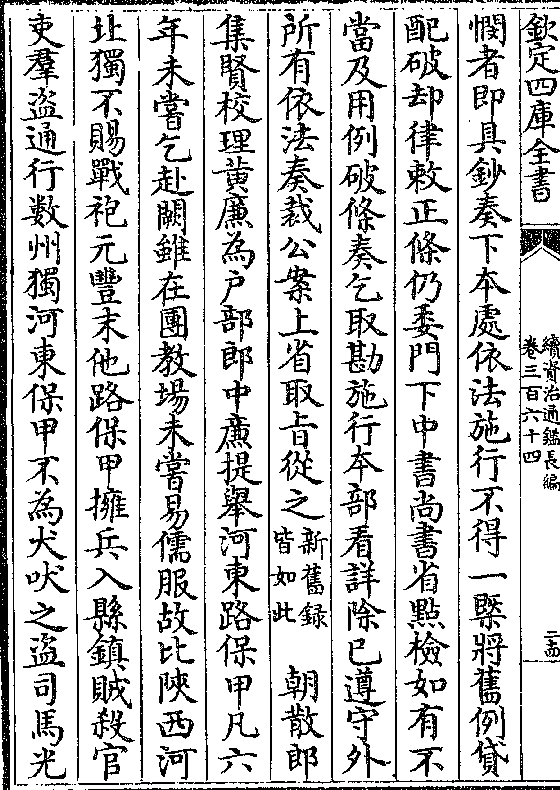 欽定四庫全書
續資治通鑑長編
卷三百六十四
二十四
憫者即具鈔奏下本處依法施行不得一槩將舊例貸
配破却律敕正條仍委門下中書尚書省點檢如有不
當及用例破條奏乞取勘施行本部看詳除已遵守外
所有依法奏裁公案上省取旨從之新舊録皆如此 朝散郎
集賢校理黄廉為户部郎中廉提舉河東路保甲凡六
年未嘗乞赴闕雖在團教場未嘗易儒服故比陜西河
北獨不賜戰袍元豐末他路保甲擁兵入縣鎮賊殺官
吏羣盗通行數州獨河東保甲不為犬吠之盗司馬光